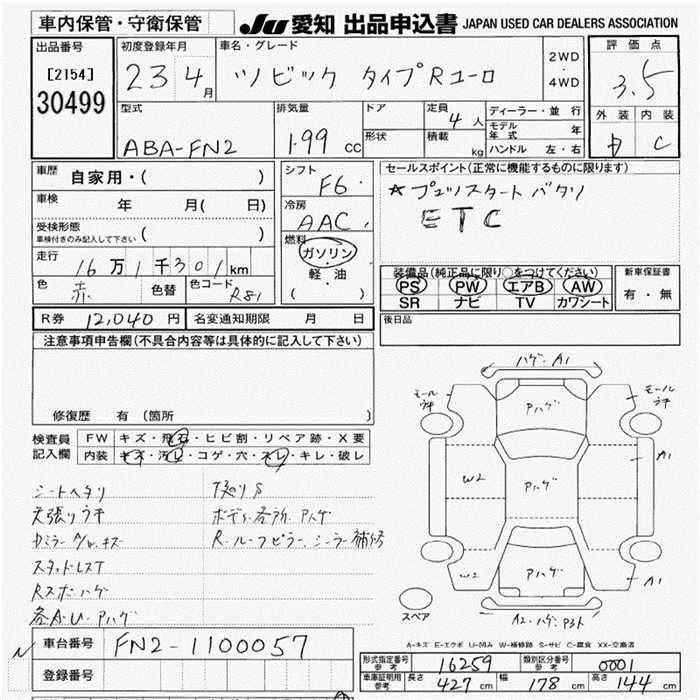 車内保管・守衛保管 JU 愛知 出品申込書 JAPAN USED CAR DEALERS ASSOCIATION
出品番号 初度登録年月 車名・グレード 2WD・4WD 評価点
[2154] 23 4月 シビック タイプRユーロ 3.5
30499 型式 排気量 ドア 定員 4人 ディーラー・並行 外装 内装
ABA-FN2 1.99 cc 形状 積載 kg モデル年式 年 C
ハンドル 左・右
車歴 自家用・( ) シフト F6 セールスポイント(正常に機能するものに限ります)
車検 年 月( 日) 冷房 AAC ☆プッシュスタート バタリ
受検形態 ( ) ETC
車検付きのみ記入して下さい 燃料 ガソリン・軽油
走行 16万1千301km ( ) 装備品(純正品に限り○をつけてください) 新車保証書
色 赤 色替 色コード R81 PS PW エアB AW 有・無
SR ナビ TV カワシート
R券 12,040円 名変通知期限 月 日 後日品
注意事項申告欄(不具合内容等は具体的に記入して下さい)
修復歴 有 (箇所
検査員 FW キズ・飛石・ヒビ割・リペア跡・X要
記入欄 内装 キズ・汚レ・コゲ・穴・スレ・キレ・破レ
シートヘタリ 下廻りS
天張りウキ ボディ各所、Aハゲ
Rルーフピラー、シーラー補修
スタッドレスT
Rスポハゲ
ハゲ・A1
モールウキ Aハゲ モールウキ
W2 Aハゲ A1
W2 Aハゲ A1
スペア
A-キズ E-エクボ U-凹み W-補修跡 S-サビ C-腐食 XX-交換済
車台番号 FN2-1100057
登録番号
形式指定番号 参考 16259 類別区分番号 参考 0001
車庫証明用 参考 長さ 427 cm 幅 178 cm 高さ 144 cm